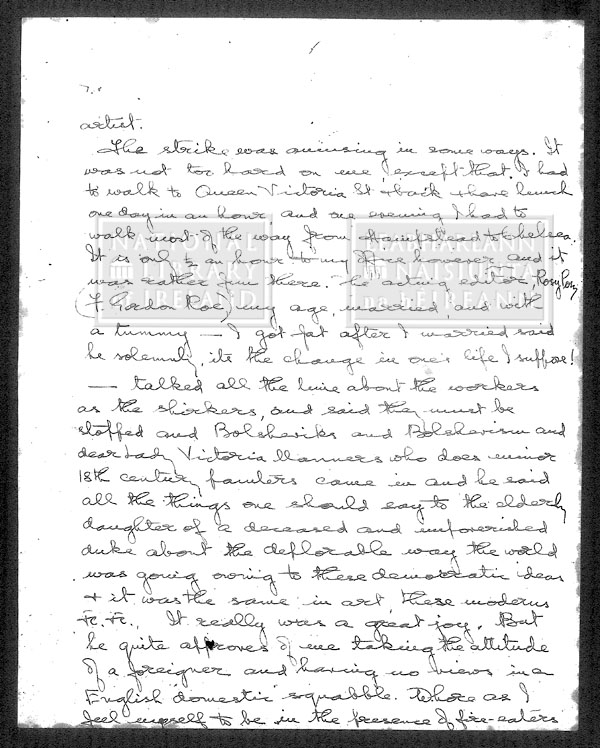 7.
artist.
The strike was amusing in some ways. It
was not too hard on me, except that I had
to walk to Queen Victoria St & back & have lunch
one day in an hour, and one evening I had to
walk most of the way from Hampstead to Chelsea.
It is only ½ an hour to my office however and it
was rather fun there. The acting editor, Rosy Posy
(F Gordon Roe) my age, married, and with
a tummy — I got fat after I married said
he solemnly, its the change in one's life I suppose!
— talked all the time about the workers
as the shirkers, and said they must be
stopped and Bolsheviks and Bolshevism and
dear Lady Victoria Manners who does minor
18th century painters came in and he said
all the things one should say to the elderly
daughter of a deceased and impoverished
duke about the deplorable way the world
was going owing to these democratic ideas
& it was the same in art, these moderns
&c. &c. It really was a great joy. But
he quite approves of me taking the attitude
of a foreigner and having no views in a
English domestic squabble. Where as I
feel myself to be in the presence of fire-eaters
NATIONAL
LIBRARY
OF IRELAND
LEABHARLANN
NAISIÚNTA
NA hÉIREANN